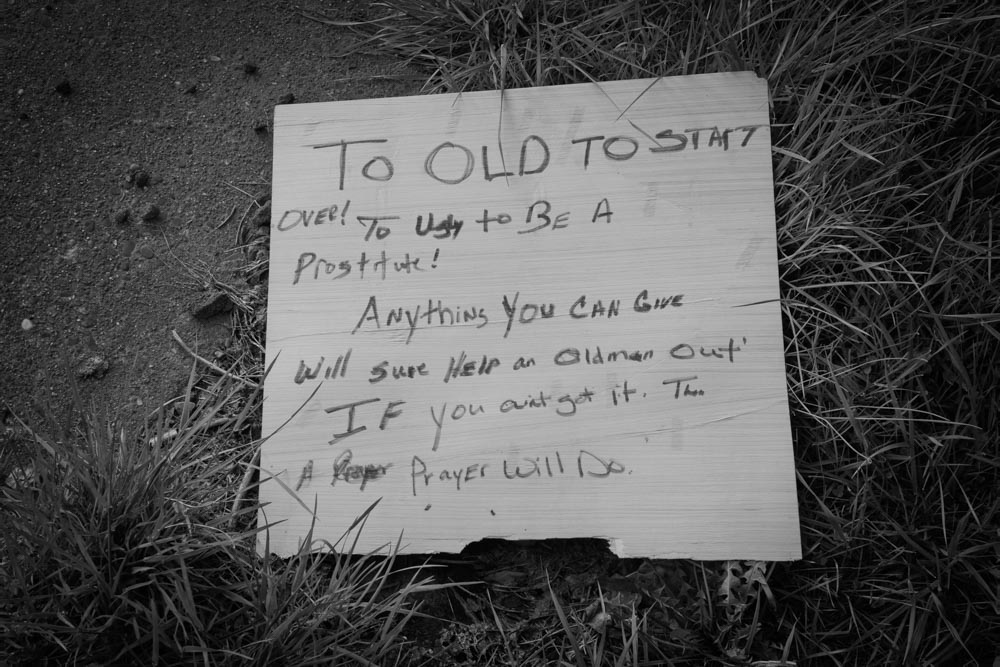 TO OLD TO START
OVER! To Ugly to BE A
Prostitute!
ANything YOU CAN GIVE
Will sure Help an Oldman Out'
IF you aint got it. Then
A Prayer Will Do.